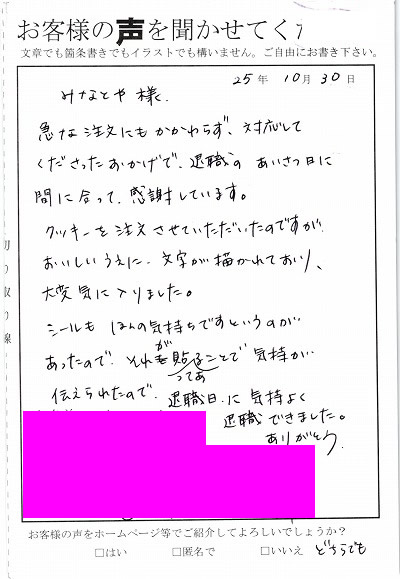 お客様の声を聞かせてく
文章でも箇条書きでもイラストでも構いません。ご自由にお書き下さい。
25年 10月 30日
みなとや 様
急な注文にもかかわらず、対応して
くださったおかげで、退職の あいさつ日に
間に合って、感謝しています。
クッキーを注文させていただいたのですが
おいしいうえに、文字が描かれており、
大変気に入りました。
シールも ほんの気持ちですというのが
あったので、それが貼ってあることで 気持が
伝えられたので、退職日に 気持よく
退職できました。
ありがとう
切り取り線
お客様の声をホームページ等でご紹介してよろしいでしょうか？
□はい □匿名で □いいえ どちらでも